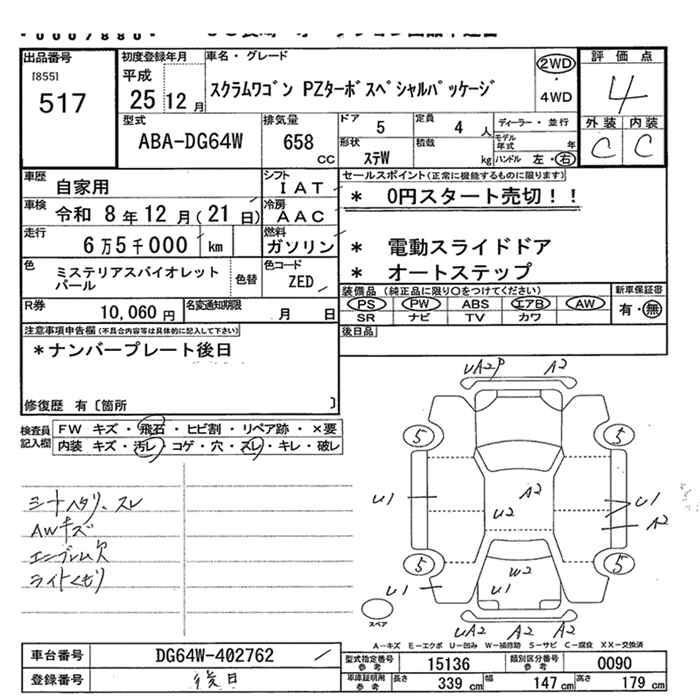 出品番号
[855]
517
初度登録年月
平成
25 12 月
車名・グレード
スクラムワゴン PZターボスペシャルパッケージ
2WD
4WD
評価点
4
外装 内装
C C
型式
ABA-DG64W
排気量
658 CC
ドア 5
定員 4 人
ディーラー・並行
モデル年式 年
形状 ステW
積載 kg
ハンドル 左・右
車歴
自家用
シフト
IAT
車検
令和 8年12月(21日)
冷房
AAC
走行
6万5千000 km
燃料
ガソリン
セールスポイント(正常に機能するものに限ります)
* 0円スタート売切!!
* 電動スライドドア
* オートステップ
色
ミステリアスバイオレット
パール
色替
色コード
ZED
装備品(純正品に限り○をつけてください)
PS PW ABS エアB AW
SR ナビ TV カワ
新車保証書
有・無
R券
10,060 円
名変通知期限
月 日
後日品
注意事項申告欄(不具合内容等は具体的に記入して下さい)
*ナンバープレート後日
修復歴 有〔箇所 〕
検査員記入欄
FW キズ・飛石・ヒビ割・リペア跡・×要
内装 キズ・汚レ・コゲ・穴・スレ・キレ・破レ
シートヘタリ、スレ
AWキズ
エンブレム欠
ライトくもり
UA2P A2
5 5
U1 U2 A2 U1
A2
5 5
U1 W2
U1
UA2 A2 A2
スペア
A-キズ E-エクボ U-凹み W-補修跡 S-サビ C-腐食 XX-交換済
車台番号
DG64W-402762
登録番号
後日
型式指定番号
参考
15136
類別区分番号
参考
0090
車庫証明用
参考
長さ 339 cm
幅 147 cm
高さ 179 cm